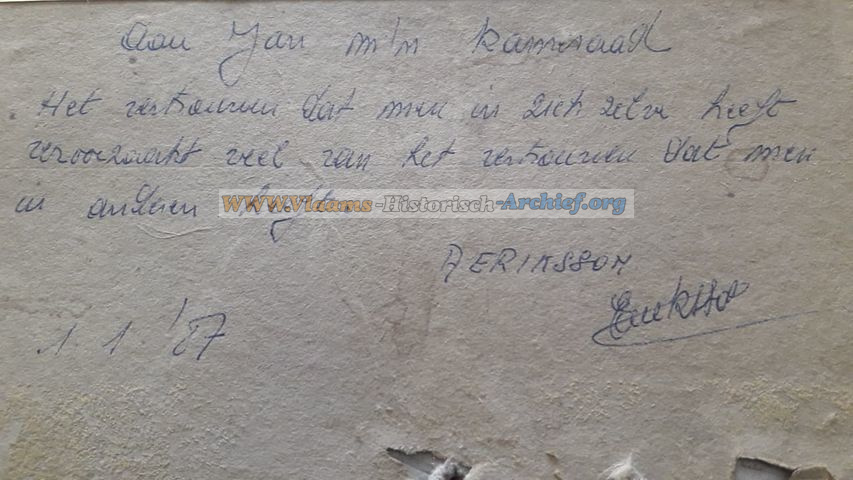 Aan Jan m'n kameraad
Het vertrouwen dat men in zich zelve heeft
veroorzaakt veel van het vertrouwen dat men
in anderen heeft.
www.Vlaams-Historisch-Archief.org
A ERIKSSON
1. 1. '87